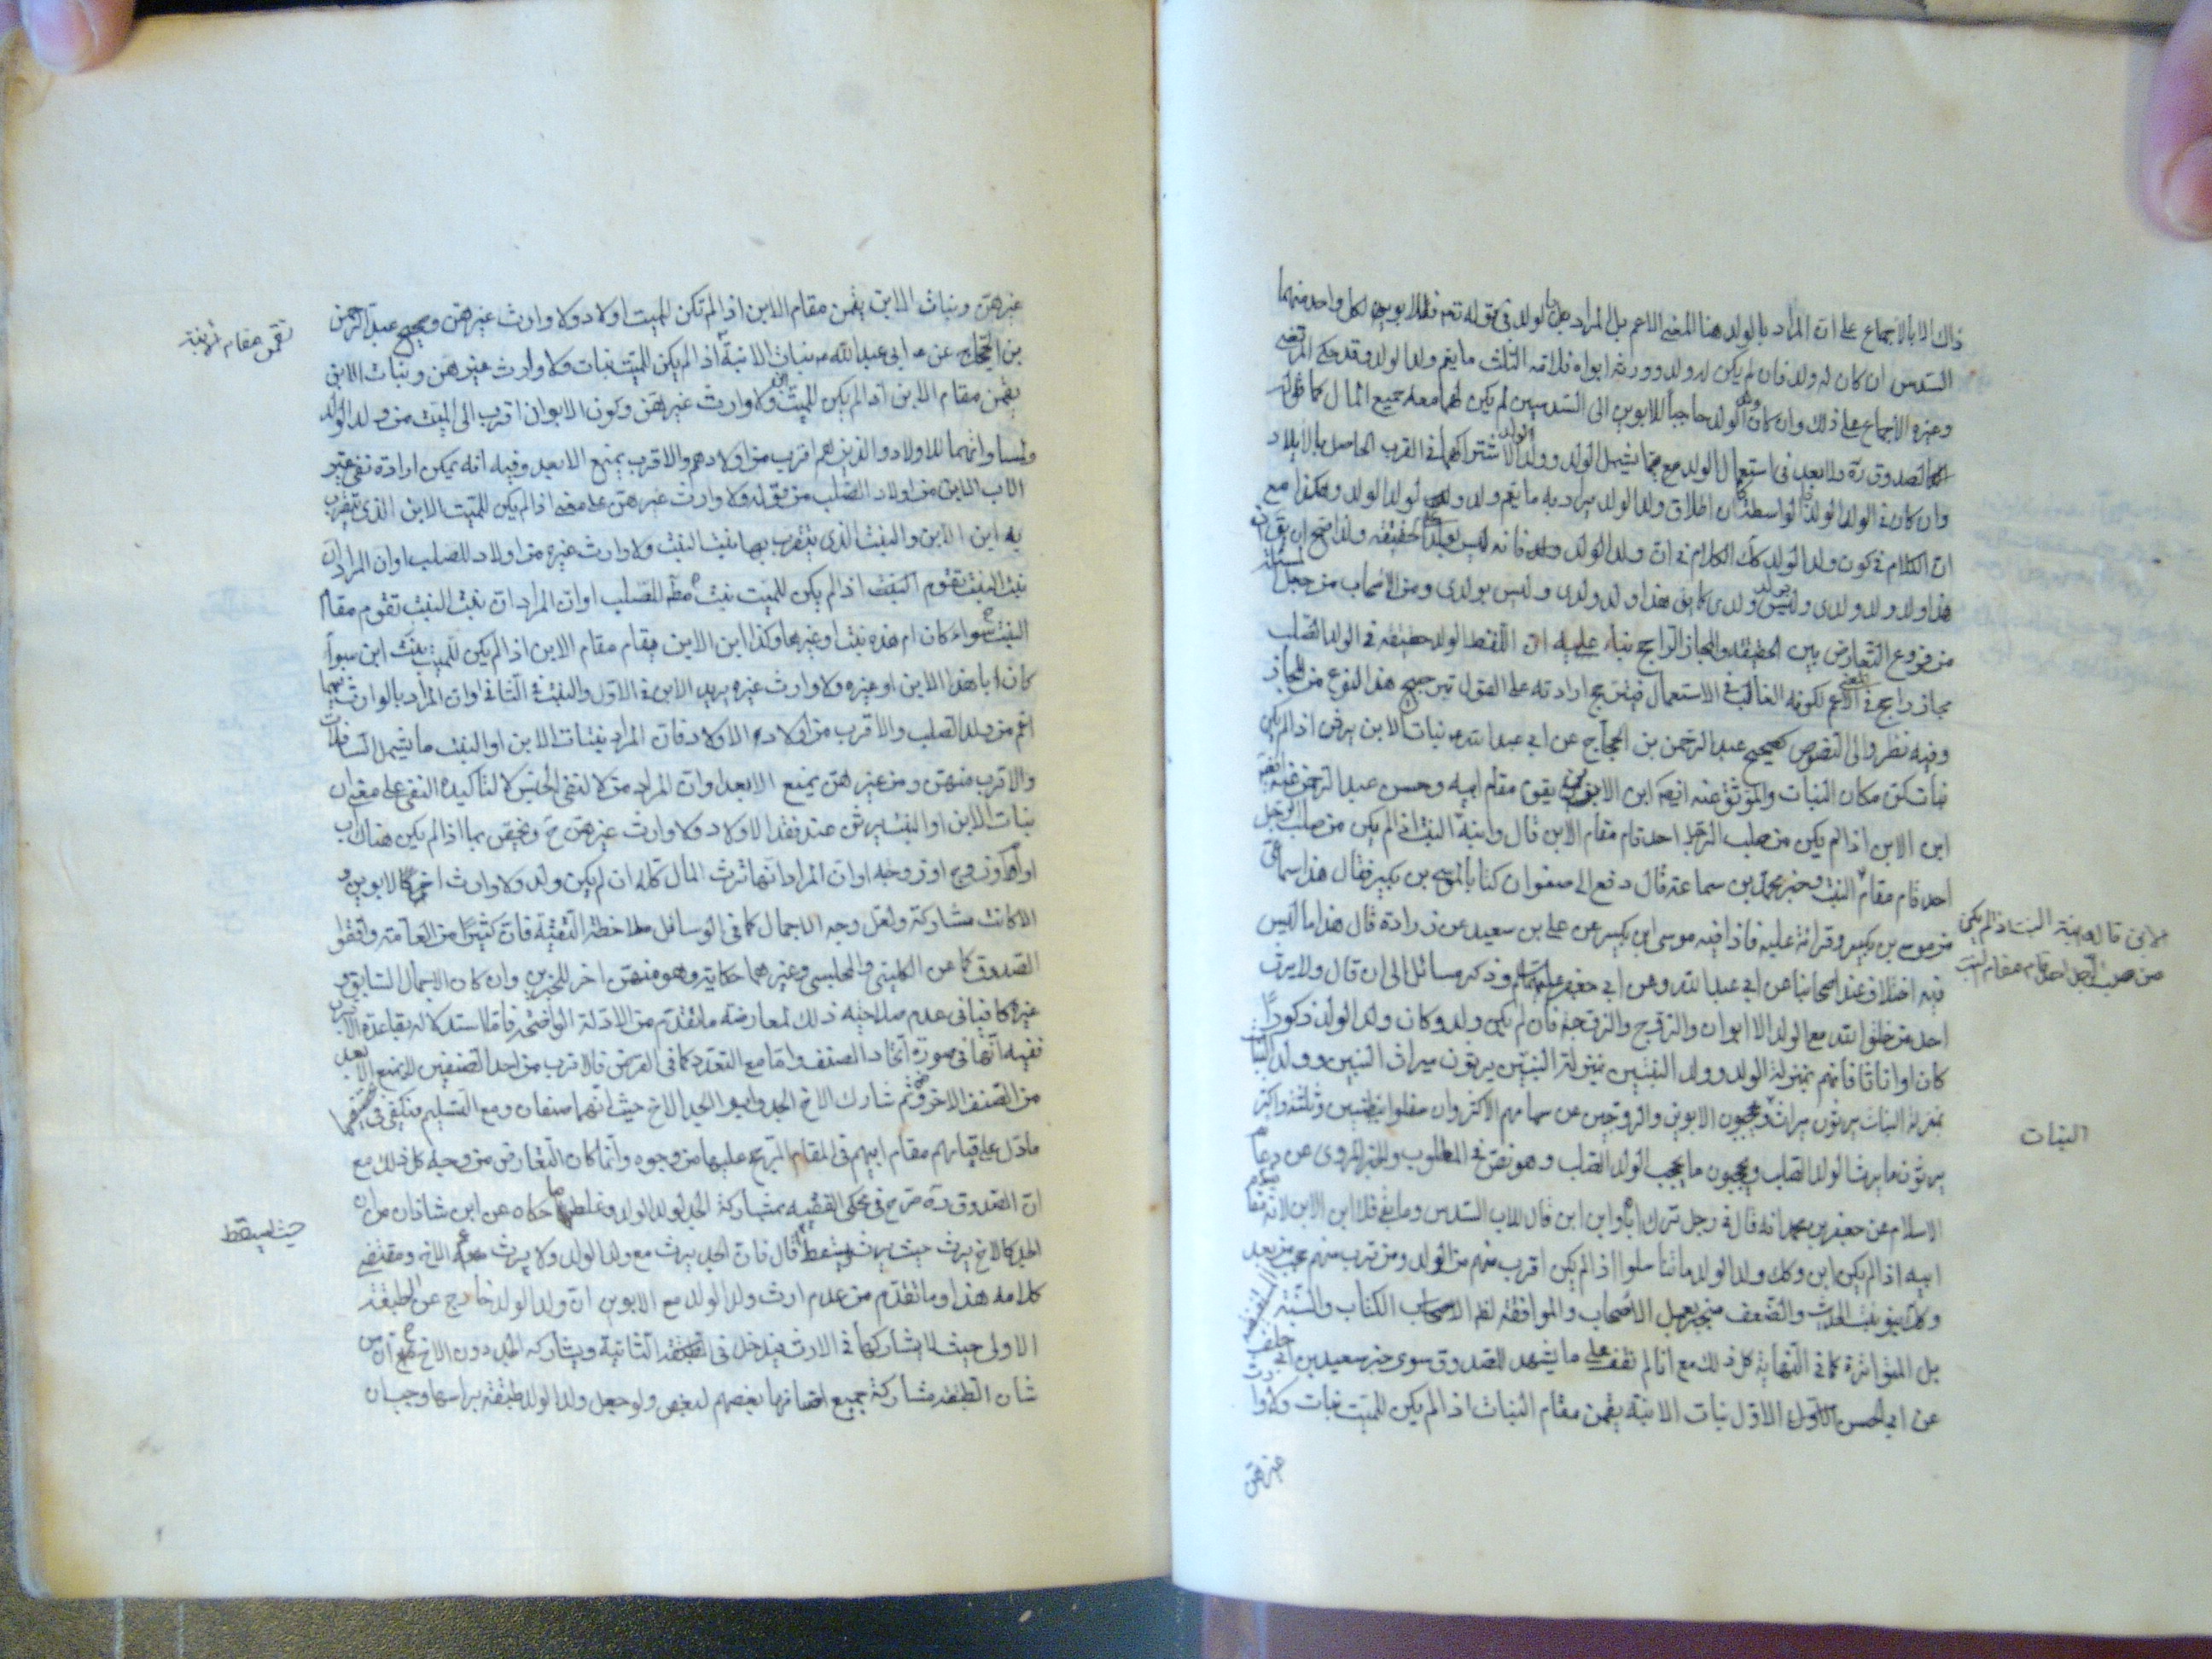 ذاك الا بالاجماع على ان المراد بالولد هنا المعنى الاعم بل المراد بالولد فى قوله تعه فلابويه لكل واحد منهما
السدس ان كان له ولد فان لم يكن له ولد وورثه ابواه فلامه الثلث ما يعم ولد الولد وقد حكى المرتضى
وغيره الاجماع على ذلك وان كان الولد حاجبا للابوين الى السدسين لم يكن لهما معه جميع المال كما
الصدوق ره ولا بعد فى استعمال الولد مع فيما يشمل الولد وولد الولد لاشتراكهما فى القرب الحاصل بالايلاد
وان كان فى الولد الولد بالواسطة اطلاق ولد الولد يراد به ما يعم ولد ولد الولد وهكذا مع
ان الكلام فى كون ولد الولد كك الكلام فى ان ولد الولد ولد فانه ليس بولد حقيقة ولذا صح ان يق
هذا ولد ولدى وليس ولدى كما هذا ولد ولدى وليس بولدى ومن الاصحاب من جعل المسئلة
من فروع التعارض بين الحقيقة والمجاز الراجح بناء عليه ان اللفظ الولد حقيقة فى الولد الصلب
مجاز راجح فى الاعم لكونه الغالب فى الاستعمال فيترجح ارادته على القول بترجيح هذا النوع من المجاز
وفيه نظر والى النصوص كصحيح عبد الرحمن بن الحجاج عن ابى عبد الله بنات الابن يرثن اذا لم يكن
بنات كن مكان البنات والموثق عنه ابن الابن يقوم مقام ابيه وحسن عبد الرحمن
ابن الابن اذا لم يكن من صلب الرجل احد قام مقام الابن قال وابنة البنت اذا لم يكن من صلب الرجل
احد قام مقام البنت وخبر محمد بن سماعة قال دفع الى صفوان كتابا لموسى بن بكير فقال هذا سماعى
من موسى بن بكير وقراته عليه فاذا فيه موسى ابن بكير عن على بن سعيد عن زرارة قال هذا ما ليس
فيه اختلاف عند اصحابنا عن ابى عبد الله وعن ابى جعفر عليهما السلام وذكر مسائل الى ان قال ولا يرث
احد من خلق الله مع الولد الا ابوان والزوج والزوجة فان لم يكن ولد وكان ولد الولد ذكورا
كان او اناثا فانهم بمنزلة الولد وولد البنين بمنزلة البنين يرثون ميراث البنين وولد البنات
بمنزلة البنات يرثون ميراث ويحجبون الابوين والزوجين عن سهامهم الاكثر وان سفلوا ببطنين وثلثة واكثر
يرثون ما يرث الولد الصلب ويحجبون ما يحجب الولد الصلب وهو نص فى المطلوب والخبر المروى عن دعائم
الاسلام عن جعفر بن محمد انه قال فى رجل ترك ابا وابن ابن قال للاب السدس وما بقى فلابن الابن لانه
ابيه اذا لم يكن ابن وكك ولد الولد ما تناسلوا اذا لم يكن اقرب منهم من الولد ومن قرب منهم حجب من بعد
وكك بنو بنت الحديث والضعف منجبر بعمل الاصحاب والموافقة لظ الكتاب والسنة
بل المتواترة كما فى النهاية كل ذلك مع انا لم نقف على ما يشهد للصدوق سوى خبر سعيد بن ابى خلف
عن ابى الحسن الاول بنات الابنة يقمن مقام البنات اذا لم يكن للميت بنات ولا وارث
غيرهن
لابن قال وابنة البنت اذا لم يكن
من صلب الرجل احد قام مقام البنت
البنات
غيرهن وبنات الابن يقمن مقام الابن اذا لم تكن للميت اولاد ولا وارث غيرهن وصحيح عبد الرحمن
بن الحجاج عن ابى عبد الله بنات الابنة اذا لم يكن للميت بنات ولا وارث غيرهن وبنات الابن
يقمن مقام الابن اذا لم يكن للميت ولا وارث غيرهن وكون الابوان اقرب الى الميت من ولد الولد
ولمساواتهما للاولاد والذين هم اقرب من اولادهم والاقرب يمنع الابعد وفيه انه يمكن ارادة نفى غير
الاب الابن من اولاد الصلب من قوله ولا وارث غيرهن على معنى اذا لم يكن للميت الابن الذى يتقرب
به ابن الابن والبنت الذى يتقرب بها بنت البنت ولا وارث غيره من اولاد للصلب او ان المراد ان
بنت البنت تقوم البنت اذا لم يكن للميت بنت للصلب او ان المراد ان بنت البنت تقوم مقام
البنت سواء كان ام هذه بنتا وغيرها وكذا ابن الابن يقام مقام الابن اذا لم يكن للميت ابن سواء
كان ابا هذا الابن او غيره ولا وارث غيره يريد الابن فى الاول والبنت فى الثانى او ان المراد بالوارث
اعم من ولد الصلب والاقرب من اولاده الاولاد فان المراد ببنات الابن او البنت ما يشمل
والاقرب منهن ومن غيرهن يمنع الابعد او ان المراد من لا لنفى الجنس لا لتاكيد النفى على معنى ان
بنات الابن او البنت يرثن عند فقد الاولاد ولا وارث غيرهن ح ويختص بما اذا لم يكن هناك اب
او ام او زوج او زوجة او ان المراد انها ترث المال كله ان لم يكن ولد ولا وارث اخر كالابوين و
الا كانت مشاركة ولعل وجه الاجمال كما فى الوسائل ملاحظة التقية فان كثيرا من العامة وافقوا
الصدوق كما عن الكلينى والمجلسى وغيرهما حكاية وهو مقتضى اخر الخبرين وان كان الاجمال السابق و
غيره كافيا فى عدم صلاحيته ذلك لمعارضة ما تقدم من الادلة الواضحة فاما استدلاله بقاعدة الاقرب
ففيه انها فى صورة اتحاد الصنف واما مع التعدد كما فى الفرض فالاقرب من احد الصنفين لا يمنع الابعد
من الصنف الاخر ومن ثم شارك الاخ الجد وابو الجد الاخ حيث انهما صنفان ومع التسليم فيكفى فى
ما دل على قيامهم مقام ابيهم فى المقام المرجح عليها من وجوه وانما كان التعارض من وجه كل ذلك مع
ان الصدوق ره صرح فى محكى الفقيه بمشاركة الجد لولد الولد وغلطها حكاه عن ابن شاذان من ان
الجد كالاخ يرث حيث يرث ويسقط قال فان الجد يرث مع ولد الولد ولا يرث معه الاخ ومقتضى
كلامه هذا وما تقدم من عدم ارث ولد الولد مع الابوين ان ولد الولد خارج عن الطبقة
الاولى حيث لا يشاركها فى الارث فيدخل فى الطبقة الثانية ويشاركه الجد دون الاخ مع ان من
شان الطبقة مشاركة جميع اصنافها بعضهم لبعض ولو جعل ولد الولد طبقة براسها وجب ان
تقمن مقام الابنة
حيث يسقط